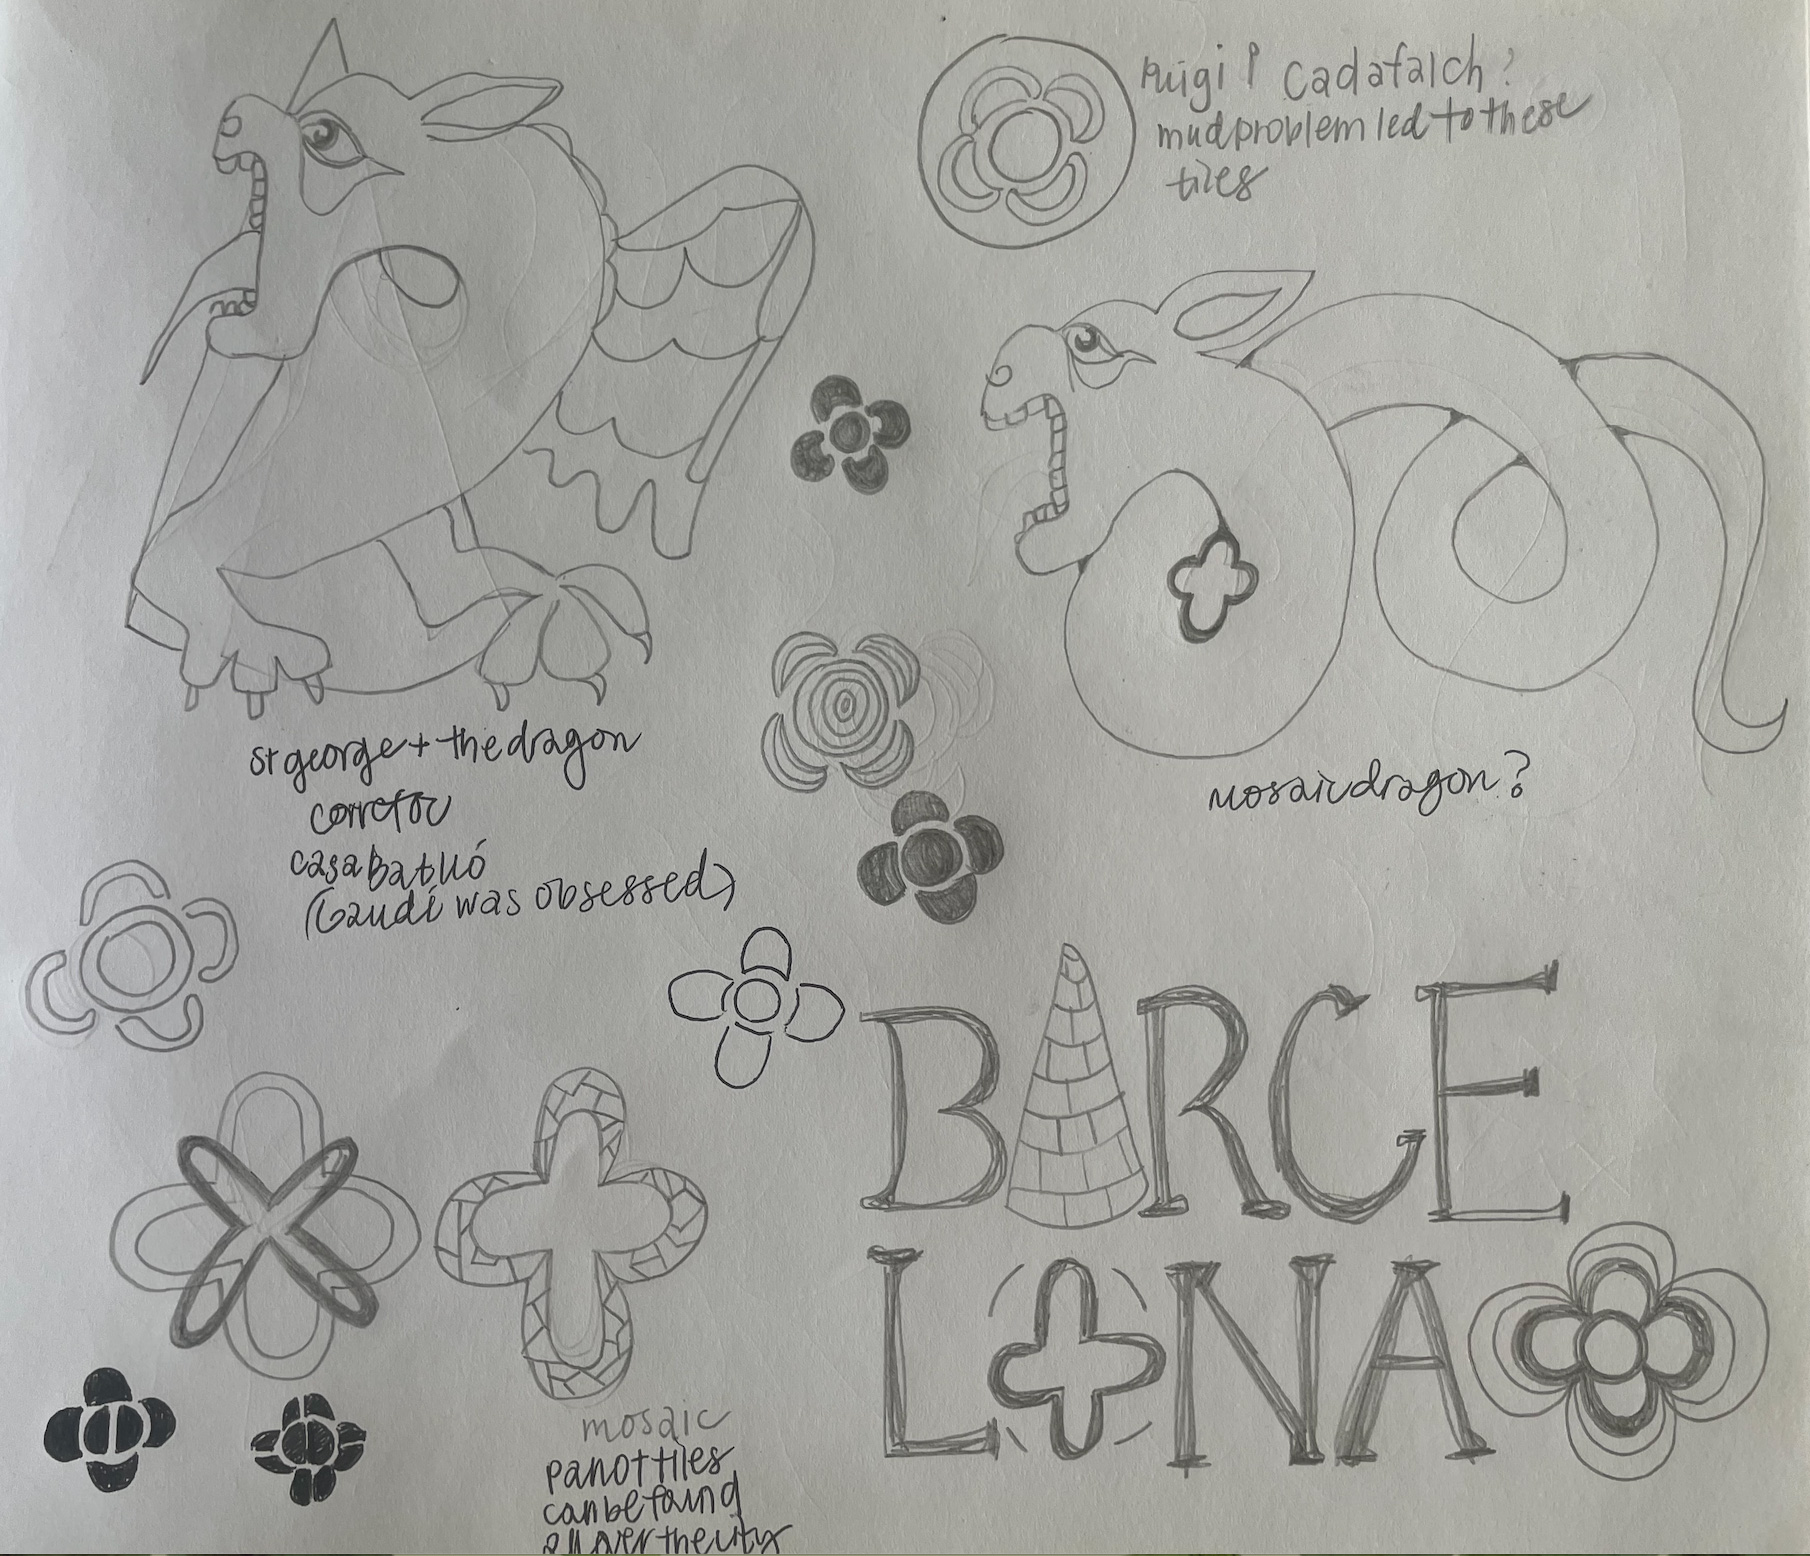 Puigi i Cadafalch?
mud problem led to these
tiles
st george + the dragon
correfoc
casa Batlló
(Gaudí was obsessed)
mosaic dragon?
BARCE
LONA
mosaic
panot tiles
can be found
all over the city